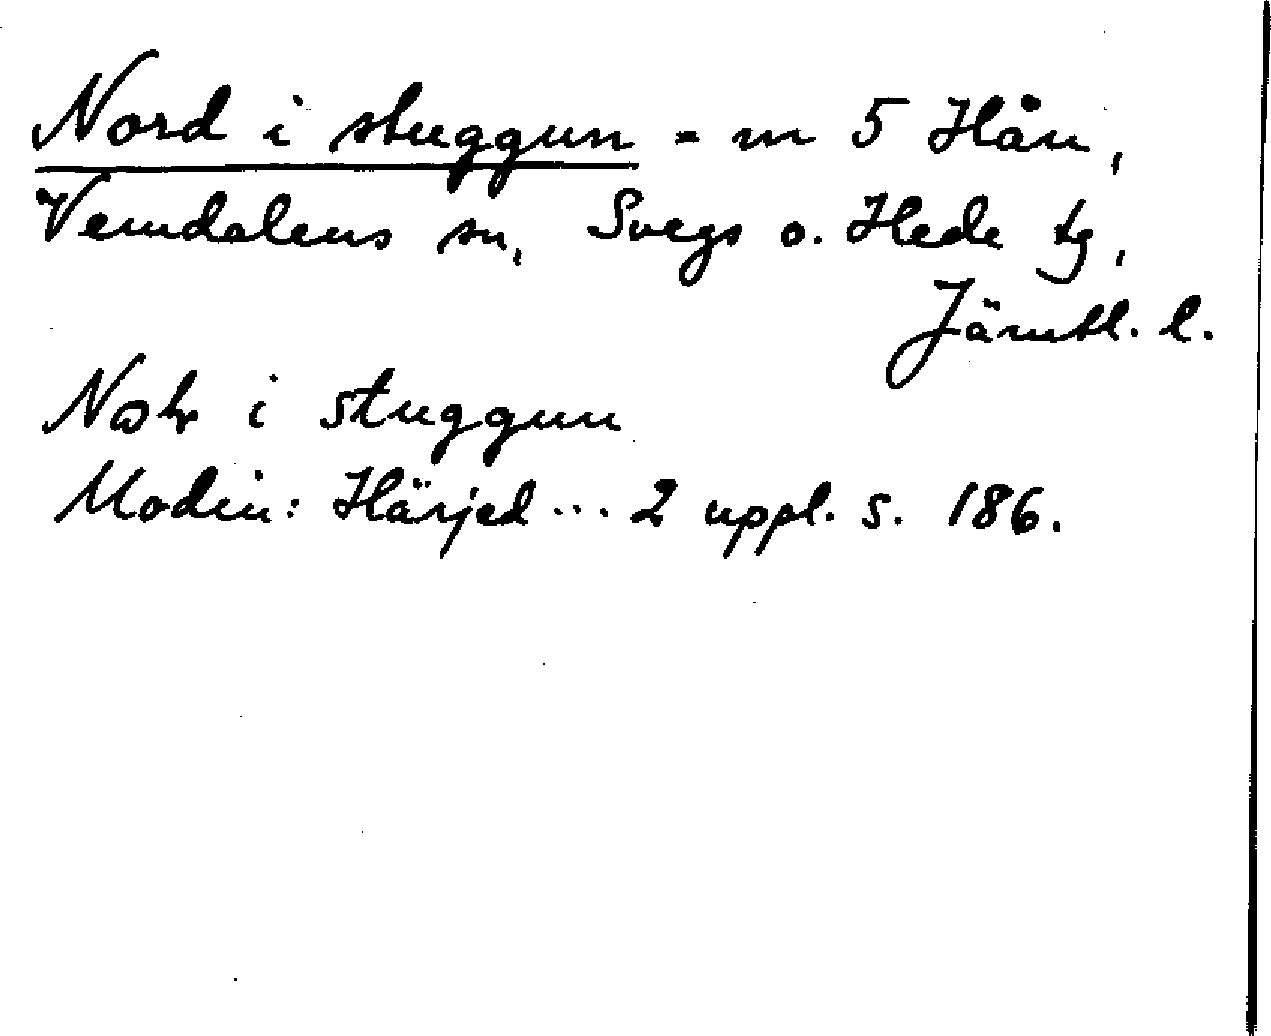 Nord i stuggun = m 5 Hån,
Vemdalens sn, Svegs o. Hede tg,
Jämtl. l.
Nolr i stuggun
Modin: Härjed... 2 uppl. s. 186.